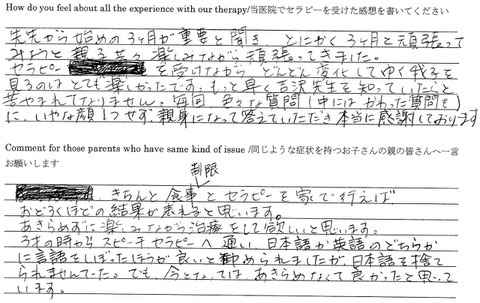 How do you feel about all the experience with our therapy/当医院でセラピーを受けた感想を書いてください
先生から始めの3ヶ月が重要と聞き とにかく3ヶ月と頑張って
みようと 親子共々 楽しみながら頑張ってきました。
セラピー を受けながら どんどん変化してゆく我子を
見るのは とても楽しかったです。もっと早く吉沢先生を知っていたらと
苦やまれてなりません。毎回 色々な質問（中にはかわった質問も）
に、いやな顔1つせず 親身になって答えていただき 本当に感謝しております
Comment for those parents who have same kind of issue /同じような症状を持つお子さんの親の皆さんへ一言
お願いします
制限
きちんと 食事 と セラピー を 家で行えば
おどろくほどの 結果が表れると思います。
あきらめずに楽しみながら治療をして欲しいと思います。
3才の時から スピーチセラピー へ 通い、日本語か英語のどちらか
に言語をしぼったほうが良いと勧められましたが 日本語を捨て
られませんでした。でも、今となっては あきらめなくて 良かったと思って
います。